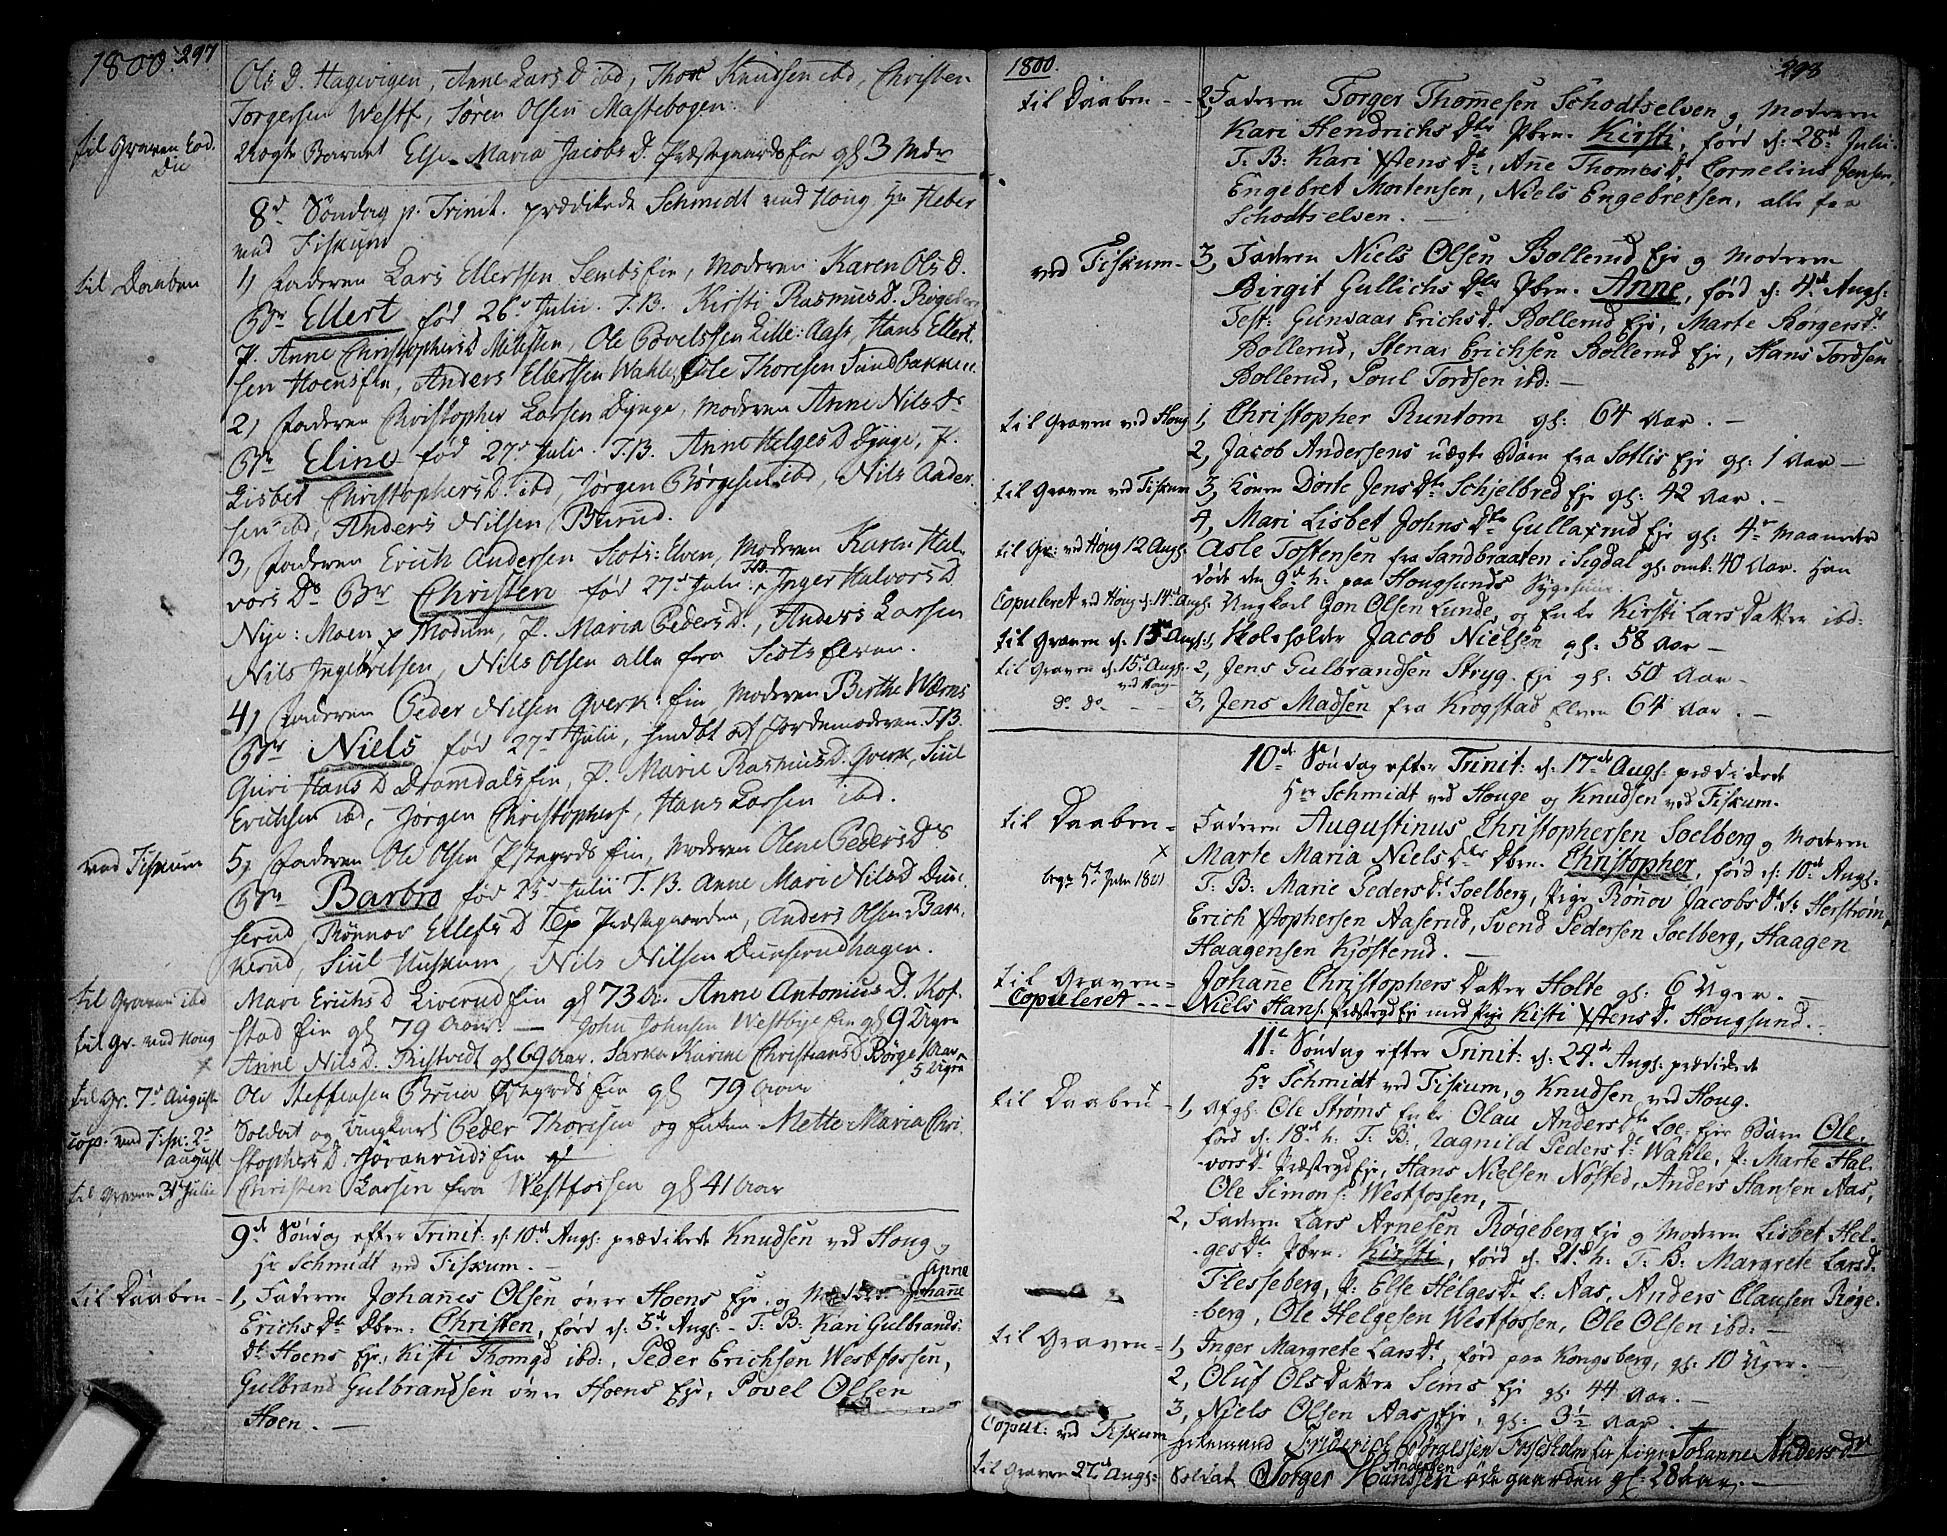 1800. 297
Ols D. Hagevigen, Anne Lars D ibd, Thore Knudsen ibd, Christen
Torgersen Westf, Søren Olsen Mastebogen.
til Graven Eod. Die
Uægte Barnet Else Maria Jacobs D. Præstegaards fin gl 3 Mdr
8d Søndag p. Trinit. prædikede Schmidt ved Houg Hr Heber
ved Fiskum
til Daaben
1, Faderen Lars Ellertsen Sembs fin, Moderen Karen Ols D.
Br Ellert fød 26d Julii. T.B. Kirsti Rasmus D. Røgeberg
P. Anne Christophers D Milesten, Ole Povelsen Lille: Aas, Hans Ellert
sen Hoens fin, Anders Ellertsen Wahle, Ole Thoresen Sundbakken.
2, Faderen Christopher Larsen Dynge, Moderen Anne Nils D.
Br Eline fød 27d Julii. T.B. Anne Helges D Dynge, P.
Lisbet Christophers D. ibd, Jørgen Børgesen ibd, Nils Ander
sen ibd, Anders Nilsen Burud.
3, Faderen Erich Andersen Scots: Elven, Moderen Karen Hal
vors D. Br Christen fød 27d Julii. T.B. Inger Halvors D
Nye: Moen p Modum, P. Maria Peders D., Anders Larsen
Nils Ingebretsen, Nils Olsen alle fra Scots Elven.
4, Faderen Peder Nilsen Qverk: fin Moderen Berthe Wærns
Br Niels fød 27d Julii, hmdbt af Jordemoderen. T.B.
Guri Hans D Dramdals fin, P. Marie Rasmus D. Qverk, Siul
Erichsen ibd, Jørgen Christophers, Hans Larsen ibd.
ved Fiskum
5, Faderen Ole Olsen Pstegrds fin, Moderen Olene Peders D
Br Barbro fød 25d Julii T.B. Anne Mari Nils D Dun
serud, Rønnov Ellefs D Præstegaarden, Anders Olsen Bak
kerud, Siul Huskum, Nils Nilsen Dunserudhagen.
til Graven ibd
Mari Erichs D Liverud fin gl 73 Ar. Anne Antonius D. Kof
til Gr. ved Houg
stad fin gl 79 Aar — John Johnsen Westbye fin gl 9 Ugr
Anne Nils D. Tristvedt gl 69 Aar. Sarka Karine Christians D Børge 1 Aar
5 Ugr
til Gr. 7d Augusti
Ole Steffensen Bruun Pstgrds fin gl 79 Aar
cop: ved Fisk: 2d august
Soldat og Ungkarl Peder Thoresen og Enken Mette Maria Chri
stophers D. Jøranruds fin
til Graven 31d Julii
Christen Larsen fra Westfossen gl 41 Aar
9d Søndag efter Trinit: d: 10d Augs: prædikede Knudsen ved Houg, og
Hr Schmidt ved Fiskum. —
til Daaben -
1, Faderen Johanes Olsen øvre Hoens Eje, og Moderen Anne Johane
Erichs Dt. Dbrn: Christen, førd d: 5d Augs: - T: B: Kari Gulbrands:
Dt. Hoens Eje, Kisti Thomes D ibd:, Peder Erichsen Westfossen,
Gulbrand Gulbrandsen øvre Hoens Eje, Povel Olsen
Hoen. —
1800. 298
til Daaben - -
2, Faderen Torger Thommesen Schodtselven og Moderen
Kari Hendrichs Dtr Pbrn. Kirsti, førd d: 28d Julii.
T: B: Kari Xstens Dt., Ane Thomes D., Cornelius Jensen,
Engebret Mortensen, Niels Engebretsen, alle fra
Schodtselven. —
ved Fiskum -
3, Faderen Niels Olsen Bollerud Eje og Moderen
Birgit Gullichs Dtr Pbrn. Anne, førd d: 4d Augs:
Test: Gunvaar Erichs D. Bollerud Eje, Marte Børgers D.
Bollerud, Stenar Erichsen Bollerud Eje, Hans Tordsen
Bollerud, Poul Tordsen ibd: —
til Graven ved Houg
1, Christopher Runtom gl: 64 Aar. —
2, Jacob Andersens uægte Barn fra Sotlis Eje gl: 1 Aar —
til Graven ved Fiskum
3, Konen Dorte Jens Dtr Schjelbred Eje gl: 42 Aar. —
4, Mari Lisbet Johns Dtr Gullaxrud Eje gl: 4r Maaneder
til Gr: ved Houg 12 Augs:
Asle Tostensen fra Sandbraaten i Sigdal gl: omt: 40 Aar. Han
døde den 9d h: paa Hougsunds Sygestue.
Copuleret ved Houg d: 14d Augs:
Ungkarl Jon Olsen Lunde og Enke Kirsti Lars Datter ibd:
til Graven d: 15d Augs:
1, Skoleholder Jacob Nielsen gl: 58 Aar —
til Graven d: 15d Augs: ved Houg
2, Jens Gulbrandsen Stryg. Eje gl: 50 Aar —
do do - -
3, Jens Madsen fra Krogstad Elven 64 Aar. —
10d Søndag efter Trinit: d: 17d Augs: prædikede
Hr Schmidt ved Houge og Knudsen ved Fiskum.
til Daaben =
Faderen Augustinus Christophersen Soelberg og Moderen
Marte Maria Niels Dtr Dbrn. Christopher, førd d: 10d Augs:
T: B: Marie Peders Dt Soelberg, Pige Rønov Jacobs Dt. Herstrøm
Erich Xstophersen Aaserud, Svend Pedersen Soelberg, Haagen
Haagensen Kjøsterud. —
til Graven =
Johane Christophers Datter Holte gl: 6 Uger. —
Copuleret - - -
Niels Hans: Præstegrd Eje med Pige Kisti Xstens D. Hougsund. -
11d Søndag efter Trinit: d: 24d Augs: prædikede
Hr Schmidt ved Fiskum, og Knudsen ved Houg.
til Daaben =
1, Afgl: Ole Strøms Enke Olau Anders Dtr Loe Ejes Barn Ole,
førd d: 18d h: T: B:, Ragnild Peders Dt Wahle, P: Marte Hal-
vors Dt Præstegrd Eje, Hans Nielsen Nøsted, Anders Hansen Aas,
Ole Simons: Westfossen, —
2, Faderen Lars Arnesen Røgeberg Eje og Moderen Lisbet Hel-
ges Dtr Pbrn. Kirsti, førd d: 21d h: T: B: Margrete Lars D.
Flesseberg, P: Else Helges Dt l: Aas, Anders Clausen Røge-
berg, Ole Helgesen Westfossen, Ole Olsen ibd: —
til Graven =
1, Inger Margrete Lars Dt, førd paa Kongsberg, gl: 10 Uger. —
2, Oluf Ols Datter Sems Eje gl: 44 Aar. —
3, Niels Olsen Aas Eje, gl: 3½ Aar. —
Copul: ved Fiskum
Friderich Børgessen Fosseholm Johanne Anders Dtr
til Graven 27d Augs:
Soldat Torger Hanssen Andersen gl: 28 Aar. —